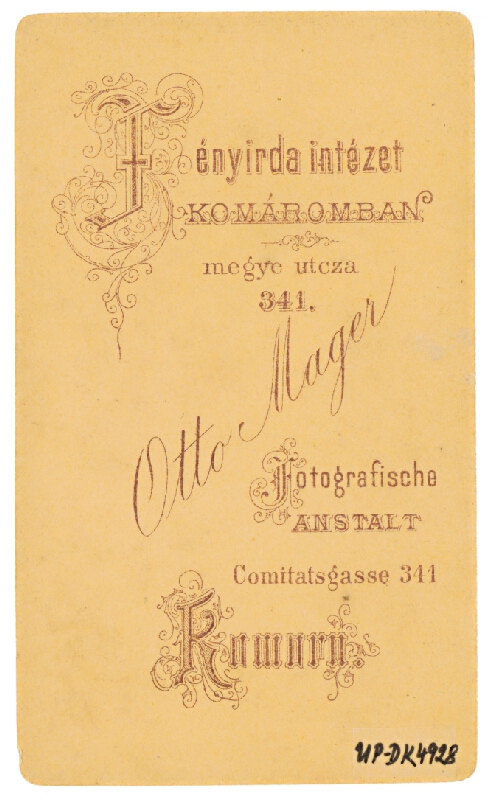 Fényirda intézet
KOMÁROMBAN
megye utcza
341.
Otto Mager
Fotografische
ANSTALT
Comitatsgasse 341
Komorn.
UP-DK4928